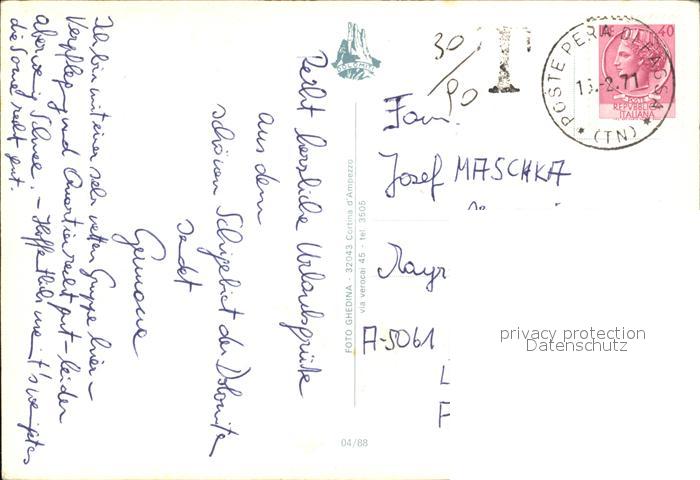 Recht herzliche Urlaubsgrüße
aus dem
schönen Schigebiet der Dolomiten
sendet
Ich bin mit einer sehr netten Gruppe hier –
Verpflegung und Quartier recht gut – leider
aber wenig Schnee. – Hoffentlich meint's weiters
die Sonne recht gut.
DOLOMITI
FOTO GHEDINA - 32043 Cortina d'Ampezzo
via verocai 45 - tel. 3505
04/88
30
90
T
POSTE PERA DI FASSA
2.71
(TN)
40
POSTE
REPUBBLICA
ITALIANA
Fam.
Josef MASCHKA
Mayr
A-5061
L
F
privacy protection
Datenschutz